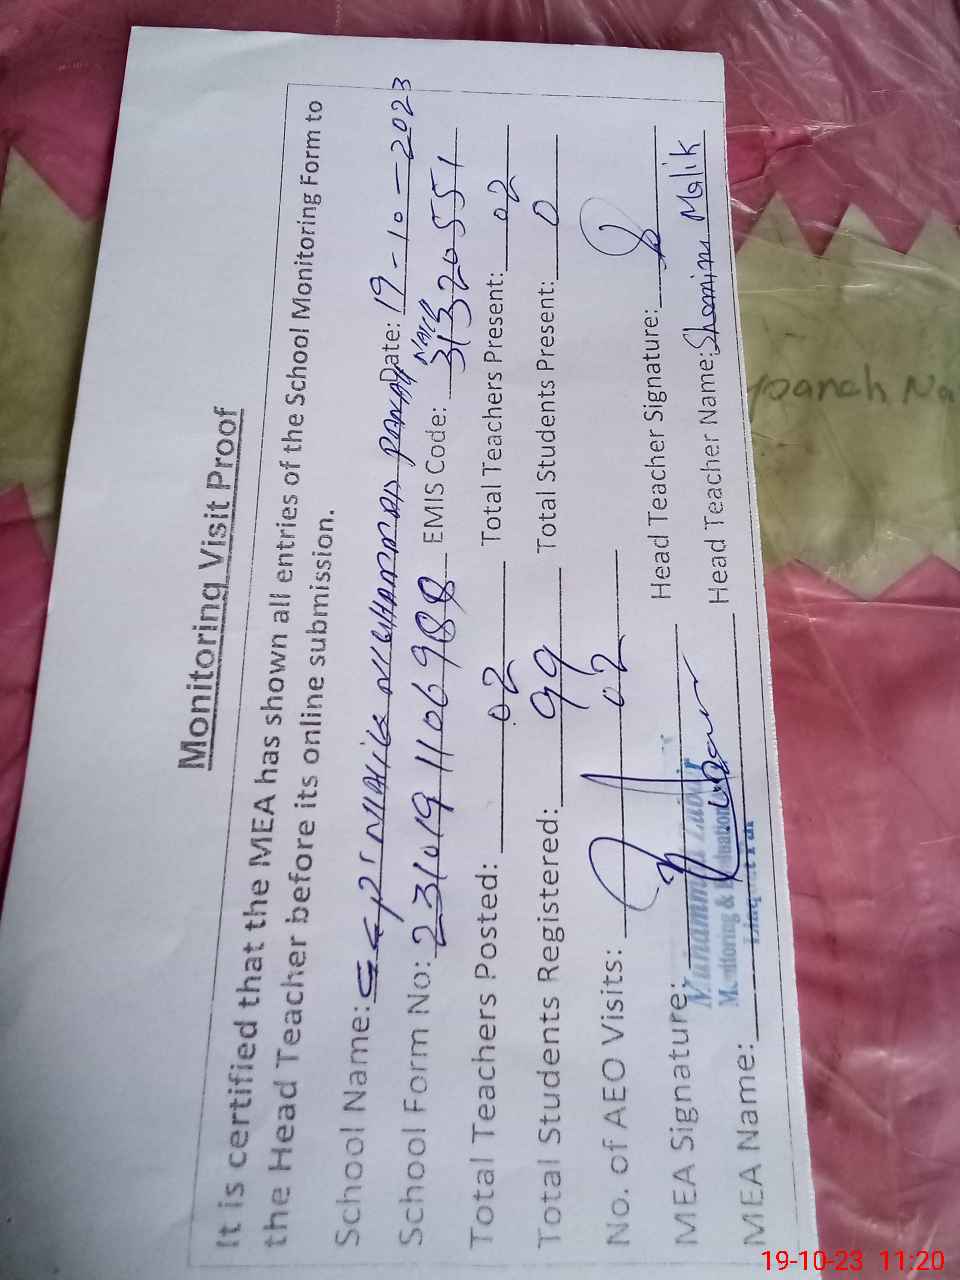 Monitoring Visit Proof
It is certified that the MEA has shown all entries of the School Monitoring Form to
the Head Teacher before its online submission.
School Name: MUHAMMAD PANAH Date: 19-10-2023
School Form No: EMIS Code: 31320551
Total Teachers Posted: 02 Total Teachers Present: 02
Total Students Registered: 99 Total Students Present: 0
No. of AEO Visits: 02
MEA Signature: Head Teacher Signature:
MEA Name: Head Teacher Name: Shamim Malik
Monitoring & Evaluation
19-10-23 11:20